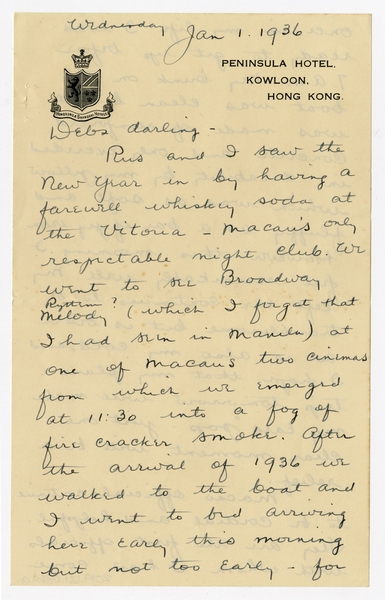 Wednesday Jan 1. 1936
PENINSULA HOTEL.
KOWLOON.
HONG KONG.
Debs darling -
Rus and I saw the
New Year in by having a
farewell whiskey soda at
the Vitoria - Macau's only
respectable night club. We
went to see Broadway
Rythm?
Melody (which I forget that
I had seen in Manila) at
one of Macau's two cinemas
from which we emerged
at 11:30 into a fog of
fire cracker smoke. After
the arrival of 1936 we
walked to the boat and
I went to bed arriving
here early this morning
but not too early - for